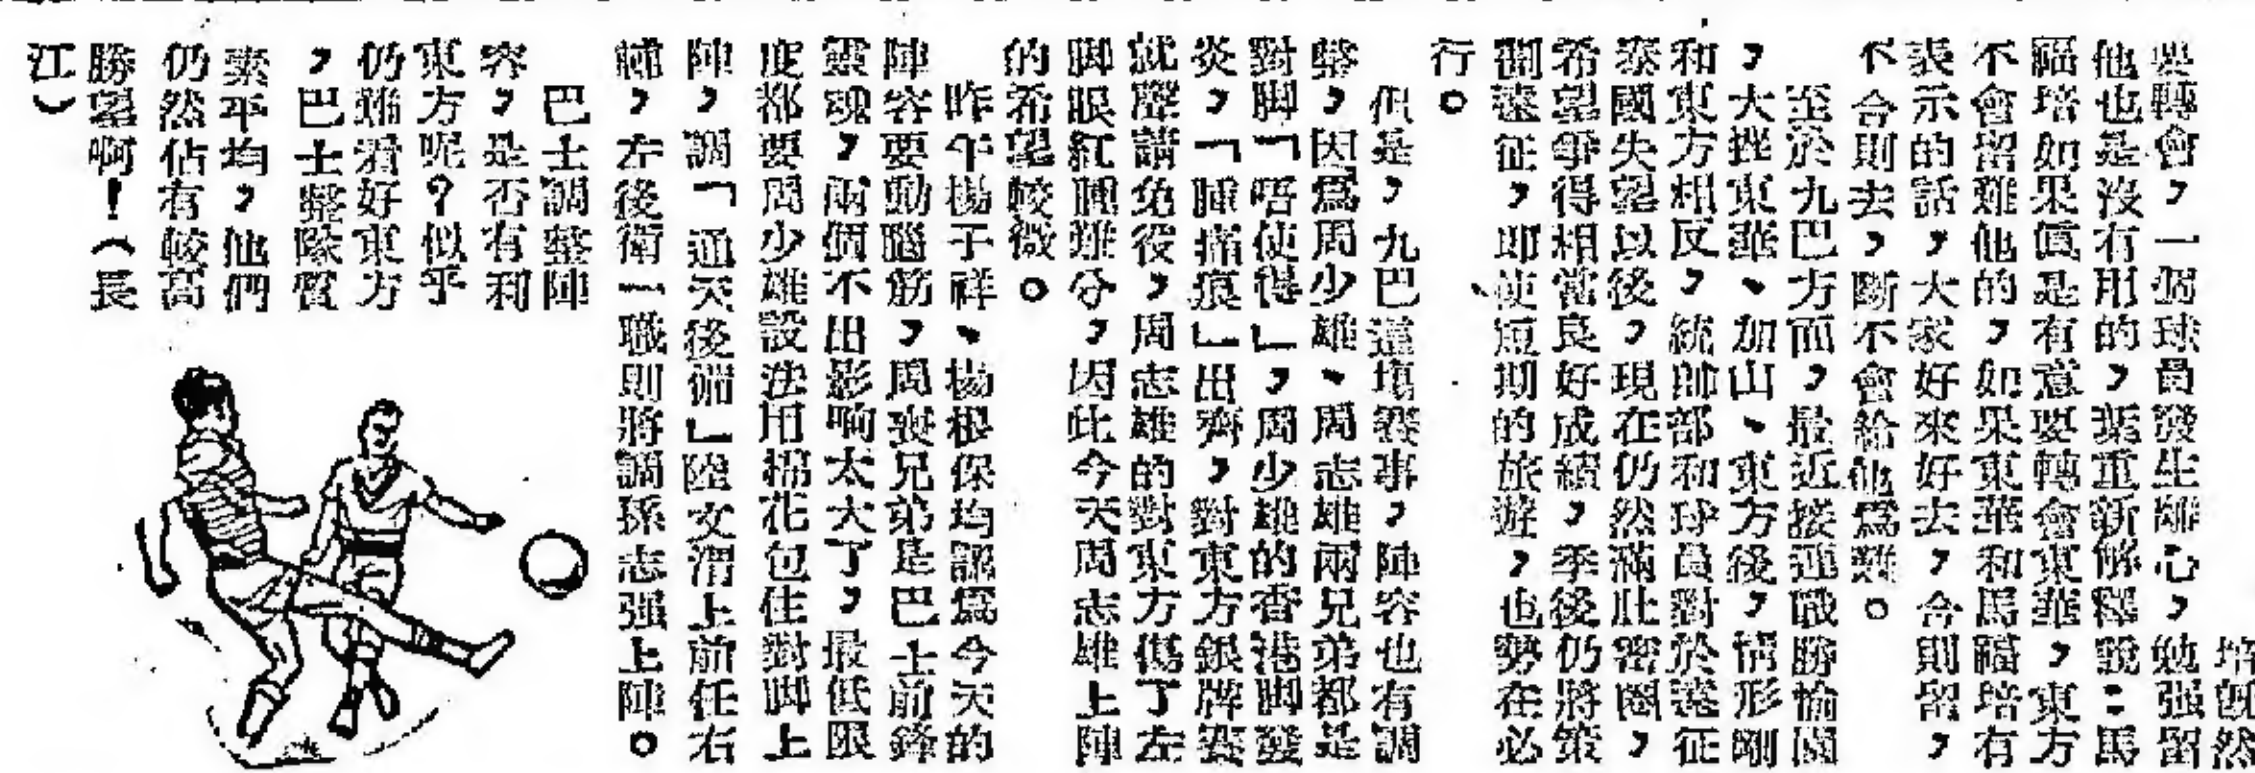 培旣然
要轉會，一個球員發生離心，勉强留
他也是沒有用的，葉重新解釋說：馬
福培如果眞是有意要轉會東華，東方
不會留難他的，如果東華和馬福培有
表示的話，大家好來好去，今則留，
不合則去，斷不會給他爲難。
至於九巴方面，最近接連戰勝愉園
，大挫東華、加山、東方後，情形剛
和東方相反，統帥部和球員對於遠征
泰國失望以後，現在仍然滿肚密圈，
希望爭得相當良好成績，季後仍將策
劃遠征，即使短期的旅遊，也勢在必
行。
但是，九巴這塲賽事，陣容也有調
整，因爲周少雄、周志雄兩兄弟都是
對脚「唔使得」，周少雄的香港脚發
炎，「腫痛痕」出齊，對東方銀牌賽
就聲請免役，周志雄的對東方傷了左
脚眼紅腫難分，因此今天周志雄上陣
的希望較微。
昨午楊子祥、楊根保均認爲今天的
陣容要動腦筋，周家兄弟是巴士前鋒
靈魂，兩個不出影响太大了，最低限
度都要周少雄設法用棉花包住對脚上
陣，調「通天後備」陸文渭上前任右
輔，左後衛一職則將調孫志强上陣。
巴士調整陣
容，是否有利
東方呢？似乎
仍難看好東方
，巴士整隊質
素平均，他們
仍然佔有較高
勝望啊！（長
江）